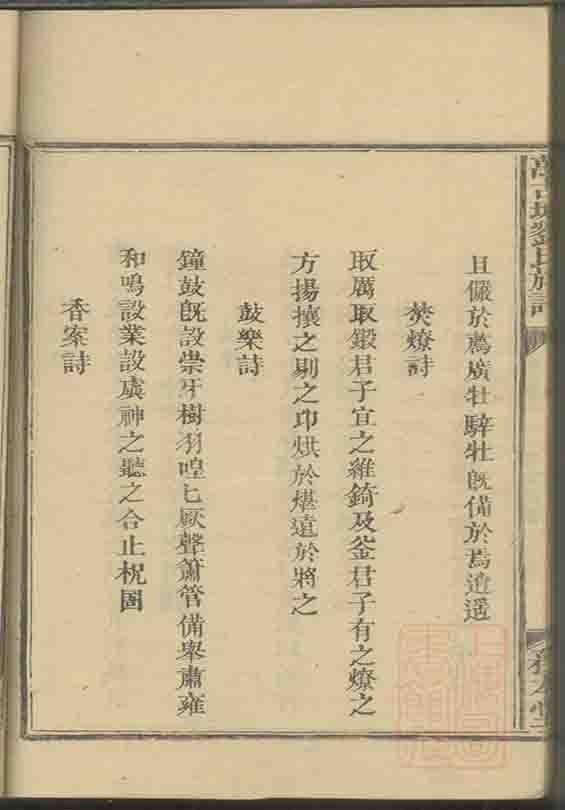 且儼於薦廣牡騂牡既備於焉逍遥
焚燎詩
取厲取鍛君子宜之維錡及釜君子有之燎之
方揚攘之剔之卬烘於煁遠於將之
鼓樂詩
鐘鼓既設崇牙樹羽喤匕厥聲簫管備舉肅雍
和鳴設業設虡神之聽之合止柷圄
香案詩